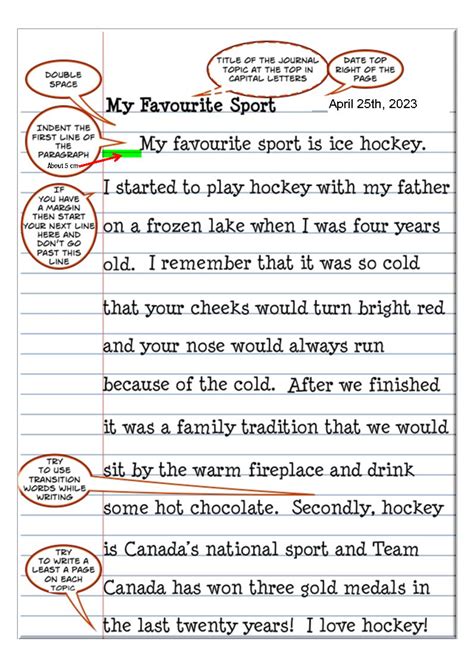 TITLE OF THE JOURNAL
TOPIC AT THE TOP IN
CAPITAL LETTERS
DATE TOP
RIGHT OF THE
PAGE
DOUBLE
SPACE
My Favourite Sport
April 25th, 2023
INDENT THE
FIRST LINE OF
THE
PARAGRAPH
About 5 cm
My favourite sport is ice hockey.
IF
YOU HAVE
A MARGIN
THEN START
YOUR NEXT LINE
HERE AND
DON'T GO
PAST THIS
LINE
I started to play hockey with my father
on a frozen lake when I was four years
old. I remember that it was so cold
that your cheeks would turn bright red
and your nose would always run
because of the cold. After we finished
it was a family tradition that we would
TRY
TO USE
TRANSITION
WORDS WHILE
WRITING
sit by the warm fireplace and drink
some hot chocolate. Secondly, hockey
TRY
TO WRITE A
LEAST A PAGE
ON EACH
TOPIC
is Canada's national sport and Team
Canada has won three gold medals in
the last twenty years! I love hockey!